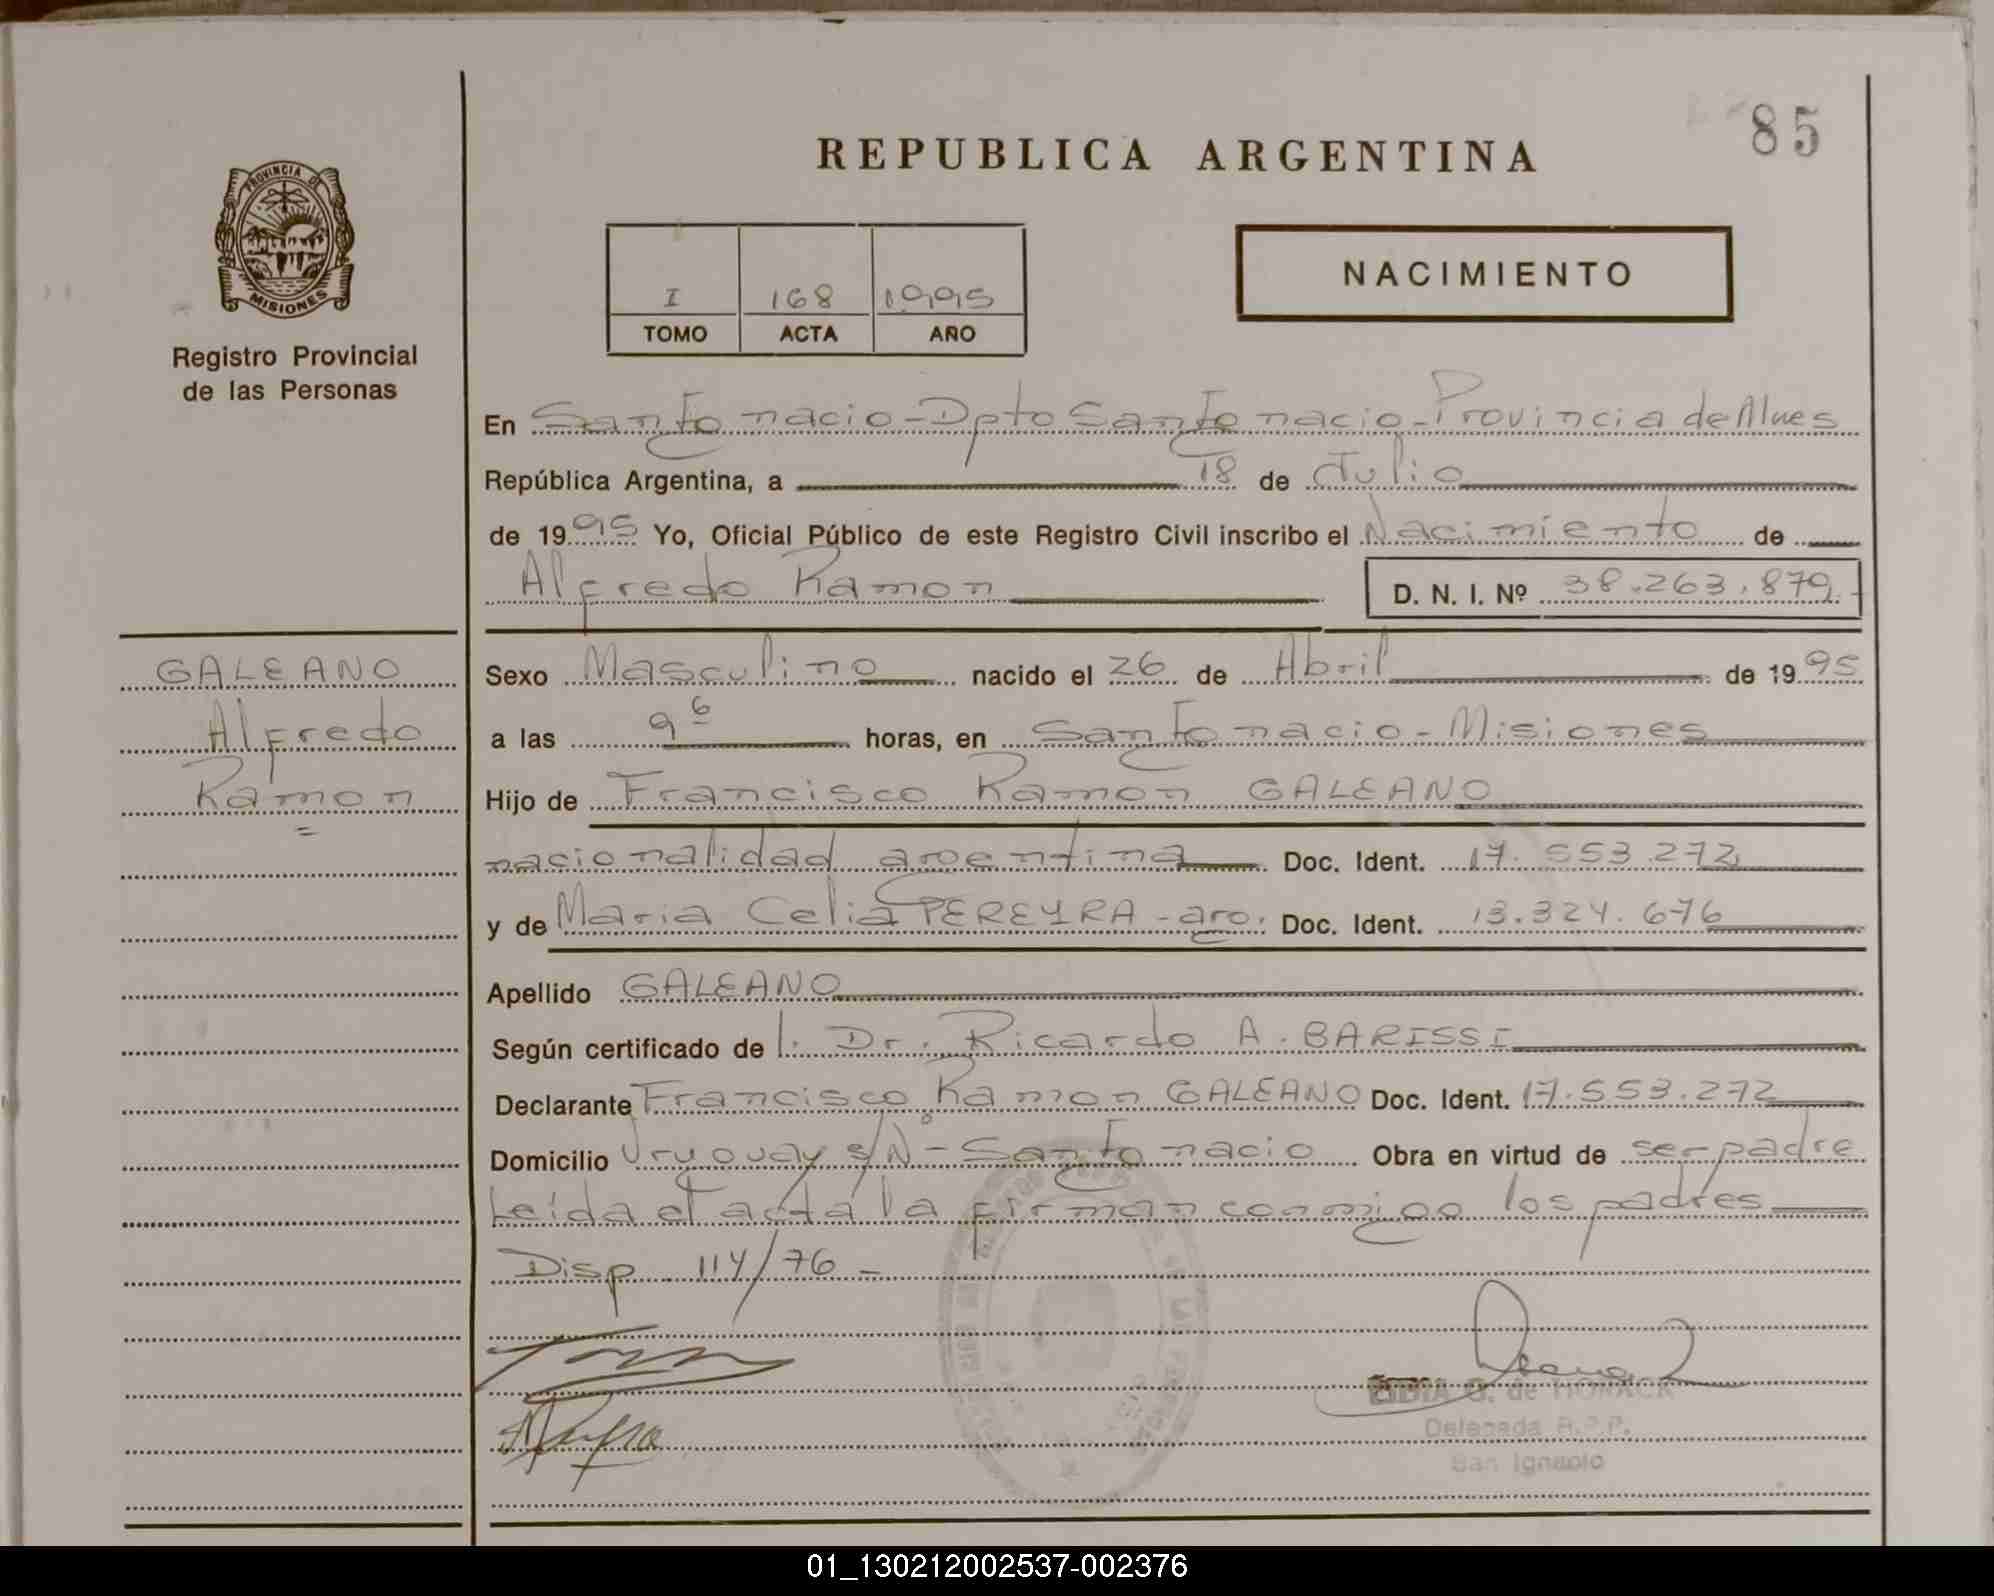 85
REPUBLICA ARGENTINA
PROVINCIA DE
MISIONES
Registro Provincial
de las Personas
I 168 1995
TOMO ACTA AÑO
NACIMIENTO
En San Ignacio - Dpto San Ignacio - Provincia de Mnes
República Argentina, a 18 de Julio
de 1995 Yo, Oficial Público de este Registro Civil inscribo el Nacimiento de
Alfredo Ramon D. N. I. Nº 38.263.879.-
GALEANO
Alfredo
Ramon
=
Sexo Masculino nacido el 26 de Abril de 1995
a las 9 6 horas, en San Ignacio - Misiones
Hijo de Francisco Ramon GALEANO
nacionalidad argentina Doc. Ident. 17.553.272
y de Maria Celia PEREYRA - arg. Doc. Ident. 13.324.676
Apellido GALEANO
Según certificado de l. Dr. Ricardo A. BARISSI
Declarante Francisco Ramon GALEANO Doc. Ident. 17.553.272
Domicilio Uruguay s/Nº - San Ignacio Obra en virtud de ser padre
Leída el acta la firman conmigo los padres
Disp 114/76 -
G. de HORACK
Delegada R.P.P.
San Ignacio
01_130212002537-002376